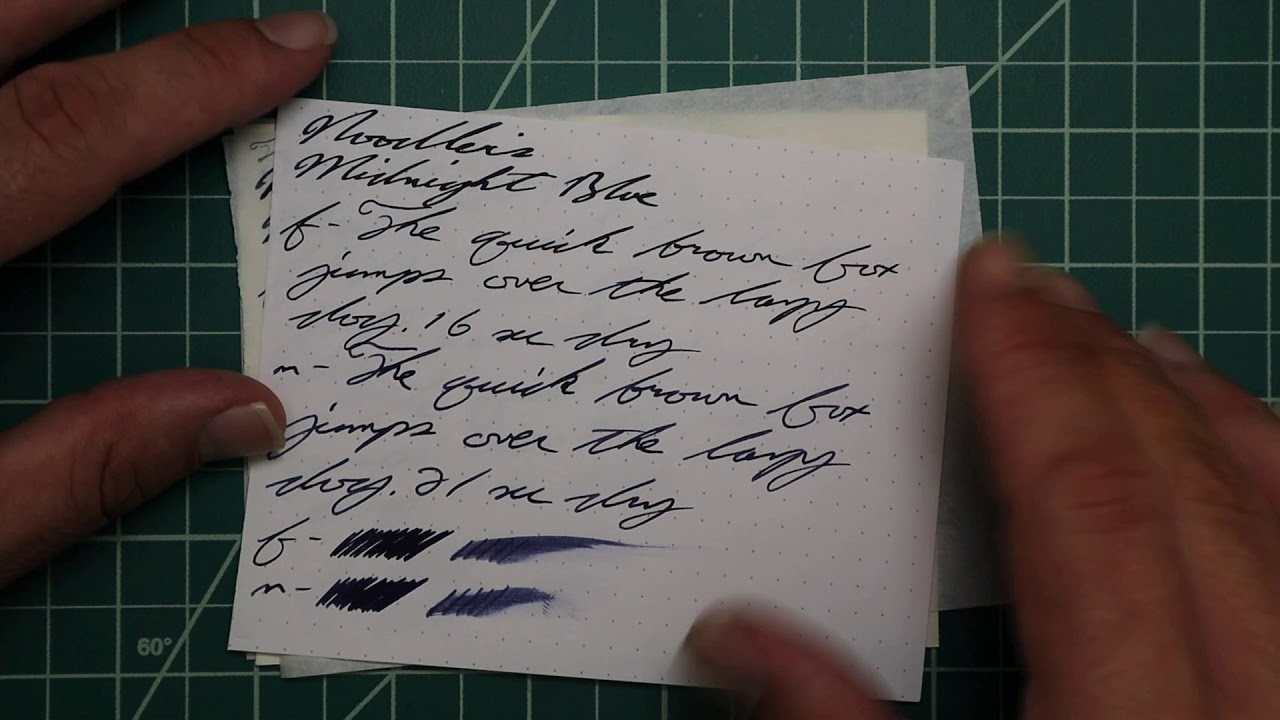 Noodler's
Midnight Blue
f- The quick brown fox
jumps over the lazy
dog. 16 sec dry
m- The quick brown fox
jumps over the lazy
dog. 21 sec dry
f-
m-
60°